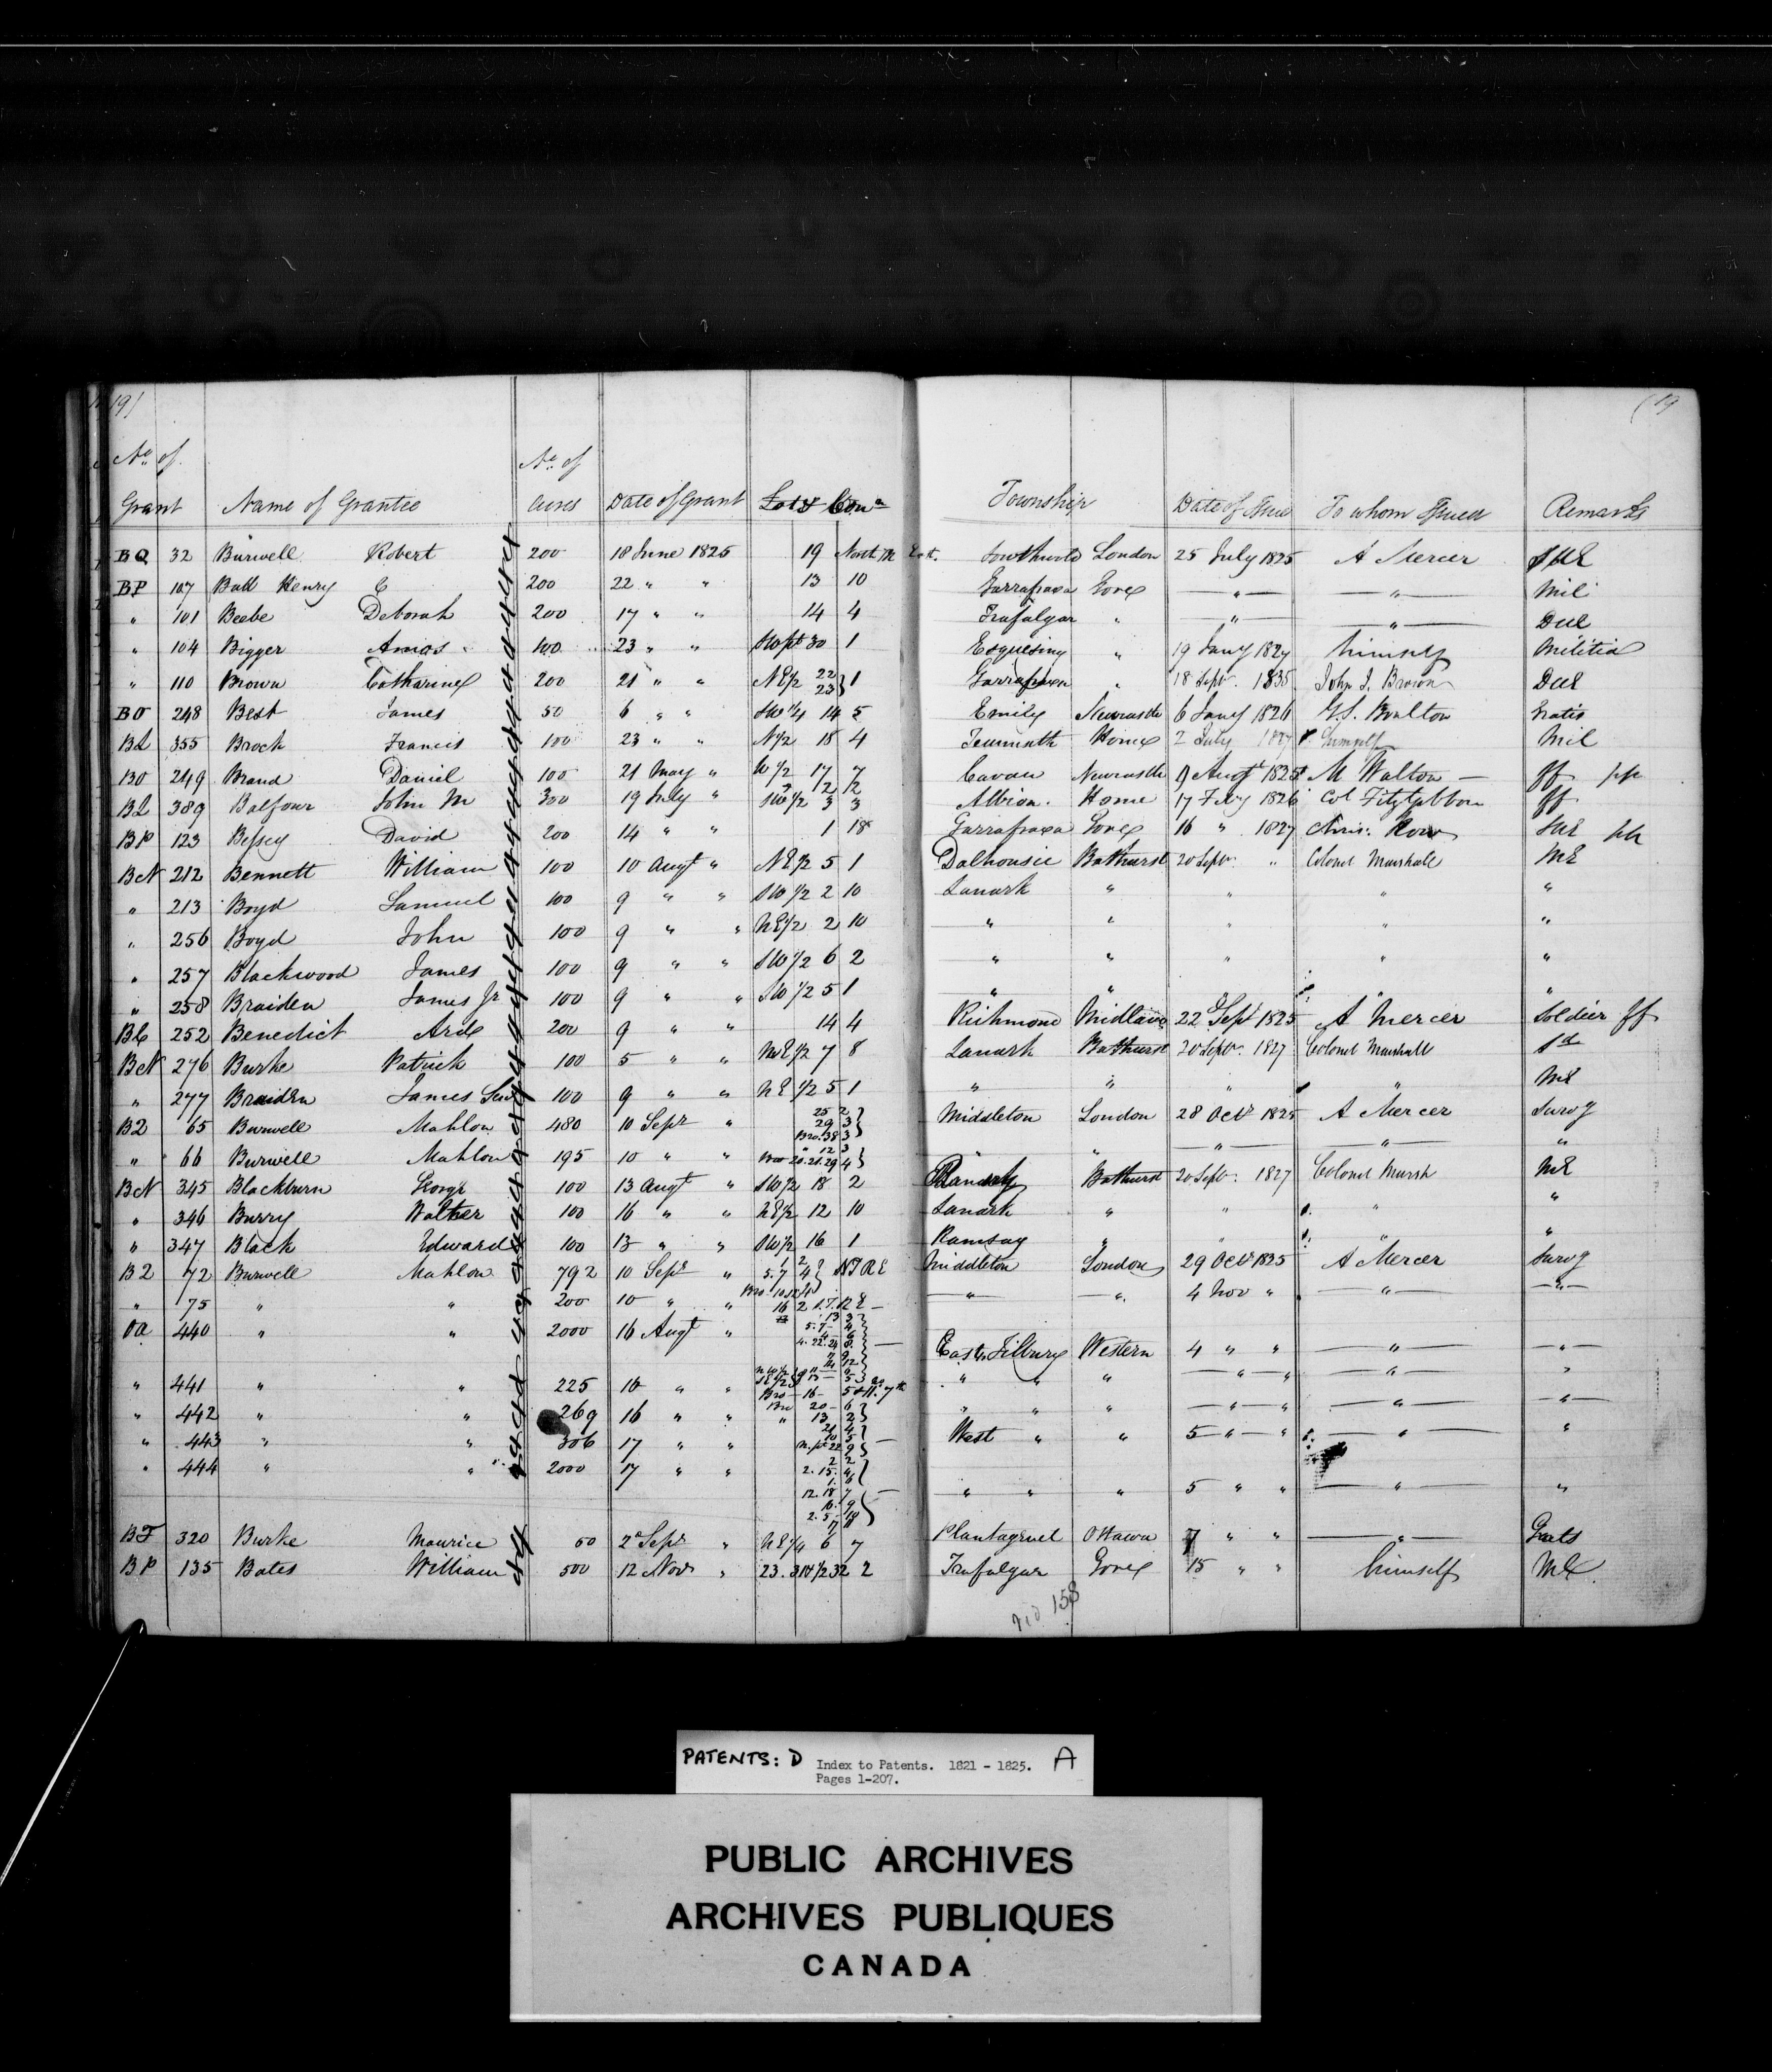 19) (19
No of No of
Grant Name of Grantee Acres Date of Grant Lot & Con Township Date of Issue To whom Issued Remarks
BQ 32 Burwell Robert 200 18 June 1825 19 North Southwold London 25 July 1825 A Mercer
BP 107 Ball Henry C 200 22 " " 13 10 Garrafraxa Gore — " — — " — Mil
" 101 Beebe Deborah 200 17 " " 14 4 Trafalgar " — " — — " — DUE
" 104 Bigger Amos 100 23 " " SW pt 30 1 Esquesing " 19 Jany 1827 himself Militia
" 110 Brown Catharine 200 21 " " NE 1/2 22 23 } 1 Garrafraxa " 18 Sept. 1835 John I. Brown DUE
BO 248 Best James 50 6 " " SW 1/4 14 5 Emily Newcastle 6 Jany 1826 G.S. Boulton Gratis
BL 355 Brock Francis 100 23 " " N 1/2 18 4 Tecumseth Home 2 July 1827 himself Mil
BO 249 Brand Daniel 100 21 May " W 1/2 17 7 Cavan Newcastle 9 Augt 1825 M Walton — ff
BL 389 Balfour John M 300 19 July " SW 1/2 3 3 Albion. Home 17 Feby 1826 Col Fitzgibbon ff
BP 123 Bessey David 200 14 " " 1 18 Garrafraxa Gore 16 " 1827 Chris: Row SUE
BcN 212 Bennett William 100 10 Augt " NE 1/2 5 1 Dalhousie Bathurst 20 Sept. " Colonel Marshall ME
" 213 Boyd Samuel 100 9 " " SW 1/2 2 10 Lanark " " " "
" 256 Boyd John 100 9 " " NE 1/2 2 10 " " " " "
" 257 Blackwood James 100 9 " " SW 1/2 6 2 " " " " "
" 258 Braiden James Jr 100 9 " " SW 1/2 5 1 " " " " "
252 Benedict 200 9 " " 14 4 Richmond Midland 22 Sept 1825 A Mercer Soldier ff
BcN 276 Burke Patrick 100 5 " " NE 1/2 7 8 Lanark Bathurst 20 Sept. 1827 Colonel Marshall
" 277 Braiden James Senr 100 9 " " NE 1/2 5 1 " " " " ME
B2 65 Burwell Mahlon 480 10 Sept " 25 2 29 3 Bro. 38 3 } Middleton London 28 Octr 1825 A Mercer Survg
" 66 Burwell Mahlon 195 10 " " 12 3 4 } " " — " — — " — "
BcN 345 Blackburn George 100 13 Augt " SW 1/2 18 2 Ramsay Bathurst 20 Sept. 1827 Colonel Marsh ME
" 346 Burry Walter 100 16 " " NE 1/2 12 10 Lanark " " " "
" 347 Black Edward 100 13 " " SW 1/2 16 1 Ramsay " " " "
B2 72 Burwell Mahlon 792 10 Sept " 5.7 4 } NTRE Middleton London 29 Octr 1825 A Mercer Survg
" 75 " " 200 10 " " 16 2 — — " — — " — 4 Nov " — " — — " —
440 " " 2000 16 Augt " East Tilbury Western 4 " " — " — — " —
" 441 " " 225 16 " " " " " — " — " — " — "
" 442 " " 269 16 " " Bro 20 – 6 " 13 2 } " " " — " — " — " — — " —
" 443 " " 306 17 " " West " " 5 — " — " — " — "
" 444 " " 2000 17 " " " " " 5 " " — " — "
BF 320 Burke Maurice 50 2 Sept " NE 1/4 6 7 Plantagenet Ottawa 7 " " — " — Grats
BP 135 Bates William 500 12 Novr " 23. 2 Trafalgar Gore 15 " " himself
158
PATENTS: D Index to Patents. 1821 – 1825. A
Pages 1-207.
PUBLIC ARCHIVES
ARCHIVES PUBLIQUES
CANADA